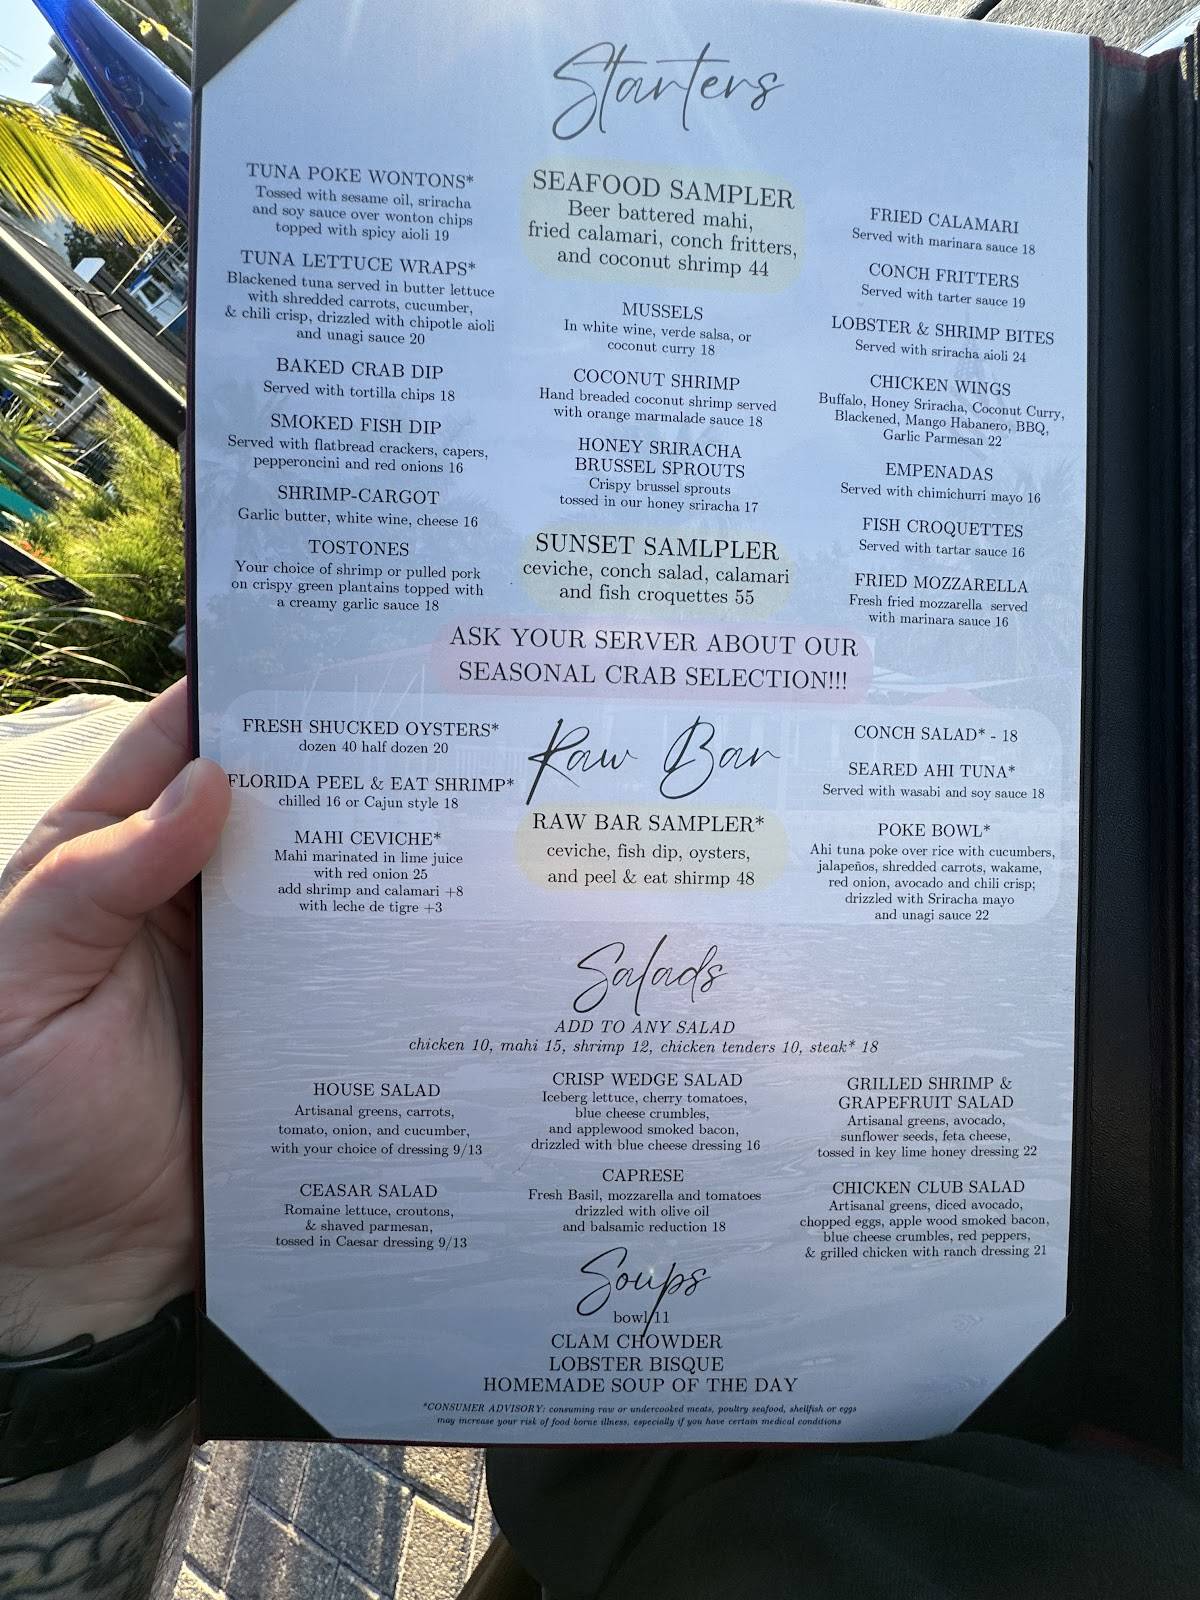 Starters
TUNA POKE WONTONS*
Tossed with sesame oil, sriracha
and soy sauce over wonton chips
topped with spicy aioli 19
TUNA LETTUCE WRAPS*
Blackened tuna served in butter lettuce
with shredded carrots, cucumber,
& chili crisp, drizzled with chipotle aioli
and unagi sauce 20
BAKED CRAB DIP
Served with tortilla chips 18
SMOKED FISH DIP
Served with flatbread crackers, capers,
pepperoncini and red onions 16
SHRIMP-CARGOT
Garlic butter, white wine, cheese 16
TOSTONES
Your choice of shrimp or pulled pork
on crispy green plantains topped with
a creamy garlic sauce 18
SEAFOOD SAMPLER
Beer battered mahi,
fried calamari, conch fritters,
and coconut shrimp 44
MUSSELS
In white wine, verde salsa, or
coconut curry 18
COCONUT SHRIMP
Hand breaded coconut shrimp served
with orange marmalade sauce 18
HONEY SRIRACHA
BRUSSEL SPROUTS
Crispy brussel sprouts
tossed in our honey sriracha 17
SUNSET SAMLPLER
ceviche, conch salad, calamari
and fish croquettes 55
FRIED CALAMARI
Served with marinara sauce 18
CONCH FRITTERS
Served with tarter sauce 19
LOBSTER & SHRIMP BITES
Served with sriracha aioli 24
CHICKEN WINGS
Buffalo, Honey Sriracha, Coconut Curry,
Blackened, Mango Habanero, BBQ,
Garlic Parmesan 22
EMPENADAS
Served with chimichurri mayo 16
FISH CROQUETTES
Served with tartar sauce 16
FRIED MOZZARELLA
Fresh fried mozzarella served
with marinara sauce 16
ASK YOUR SERVER ABOUT OUR
SEASONAL CRAB SELECTION!!!
Raw Bar
FRESH SHUCKED OYSTERS*
dozen 40 half dozen 20
FLORIDA PEEL & EAT SHRIMP*
chilled 16 or Cajun style 18
MAHI CEVICHE*
Mahi marinated in lime juice
with red onion 25
add shrimp and calamari +8
with leche de tigre +3
RAW BAR SAMPLER*
ceviche, fish dip, oysters,
and peel & eat shirmp 48
CONCH SALAD* - 18
SEARED AHI TUNA*
Served with wasabi and soy sauce 18
POKE BOWL*
Ahi tuna poke over rice with cucumbers,
jalapeños, shredded carrots, wakame,
red onion, avocado and chili crisp;
drizzled with Sriracha mayo
and unagi sauce 22
Salads
ADD TO ANY SALAD
chicken 10, mahi 15, shrimp 12, chicken tenders 10, steak* 18
HOUSE SALAD
Artisanal greens, carrots,
tomato, onion, and cucumber,
with your choice of dressing 9/13
CEASAR SALAD
Romaine lettuce, croutons,
& shaved parmesan,
tossed in Caesar dressing 9/13
CRISP WEDGE SALAD
Iceberg lettuce, cherry tomatoes,
blue cheese crumbles,
and applewood smoked bacon,
drizzled with blue cheese dressing 16
CAPRESE
Fresh Basil, mozzarella and tomatoes
drizzled with olive oil
and balsamic reduction 18
GRILLED SHRIMP &
GRAPEFRUIT SALAD
Artisanal greens, avocado,
sunflower seeds, feta cheese,
tossed in key lime honey dressing 22
CHICKEN CLUB SALAD
Artisanal greens, diced avocado,
chopped eggs, apple wood smoked bacon,
blue cheese crumbles, red peppers,
& grilled chicken with ranch dressing 21
Soups
bowl 11
CLAM CHOWDER
LOBSTER BISQUE
HOMEMADE SOUP OF THE DAY
*CONSUMER ADVISORY: consuming raw or undercooked meats, poultry seafood, shellfish or eggs
may increase your risk of food borne illness, especially if you have certain medical conditions